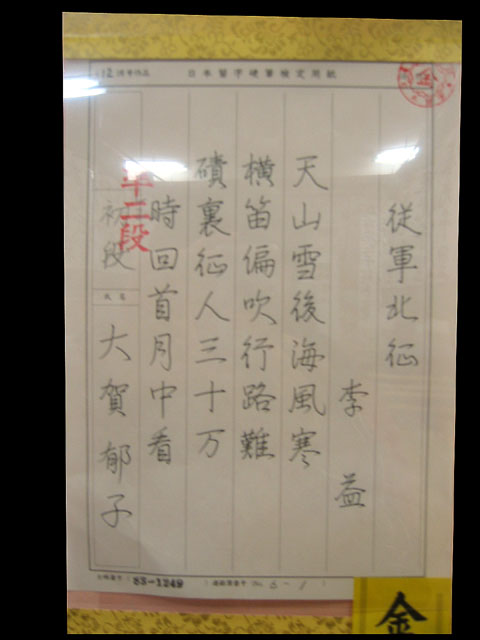 日本習字硬筆検定用紙
従軍北征
李益
天山雪後海風寒
横笛偏吹行路難
磧裏征人三十万
時回首月中看
初段
準二段
氏名
大賀郁子
83-1249
金